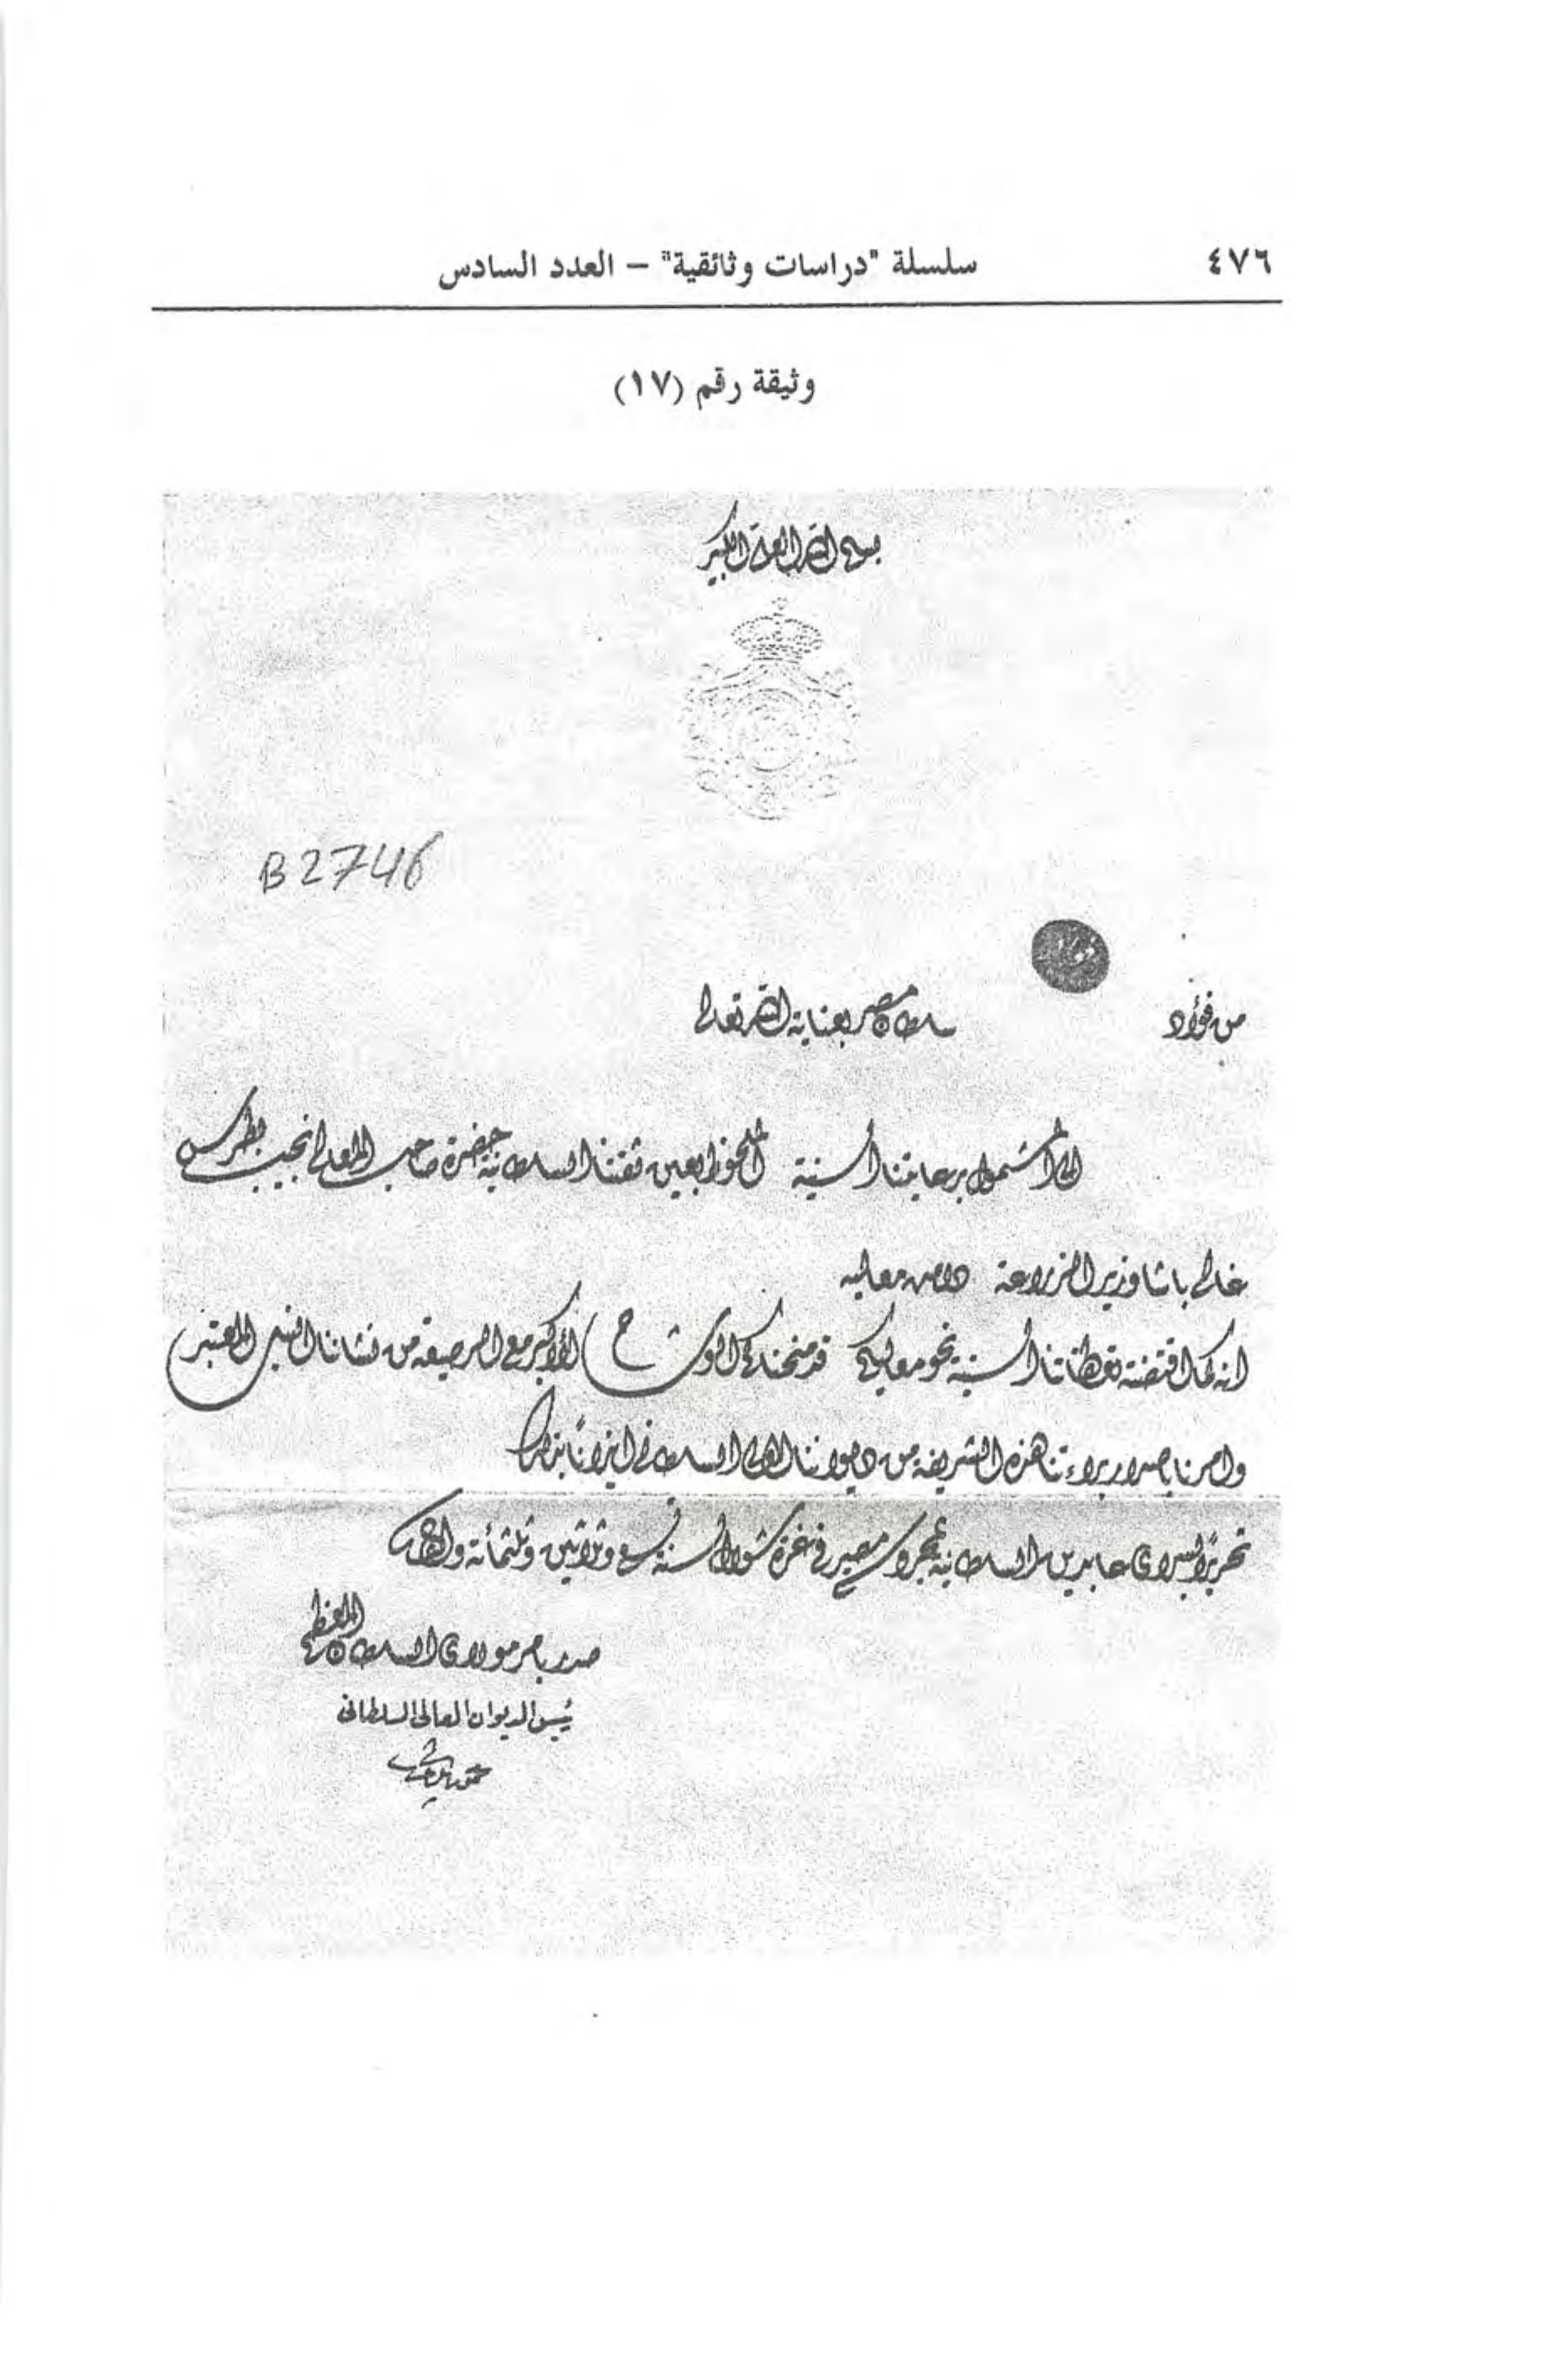 سلسلة "دراسات وثائقية" – العدد السادس ٤٧٦
وثيقة رقم (١٧)
بسم الله العلى الكبير
B2746
فؤاد
من فؤاد سلطان مصر بعناية الله تعالى
الى المشمول برعايتنا السنية الملحوظ بعين ثقتنا السلطانية حضرة صاحب المعالى نجيب بطرس
غالى باشا وزير الزراعة دامت معاليه
انه لما اقتضته تعطفاتنا السنية نحو معاليكم قد منحناكم الوشاح الأكبر مع الرصيعة من نشاننا النيل المعتبر
وامرنا باصدار براءتنا هذه الشريفة من ديواننا العالى السلطانى ايذانا بذلك
تحريرًا بسراى عابدين السلطانية بمحروسة مصر فى غرة شوال سنة تسع وثلاثين وثلثمائة والف
صدر بامر مولاى السلطان المعظم
رئيس الديوان العالى السلطانى